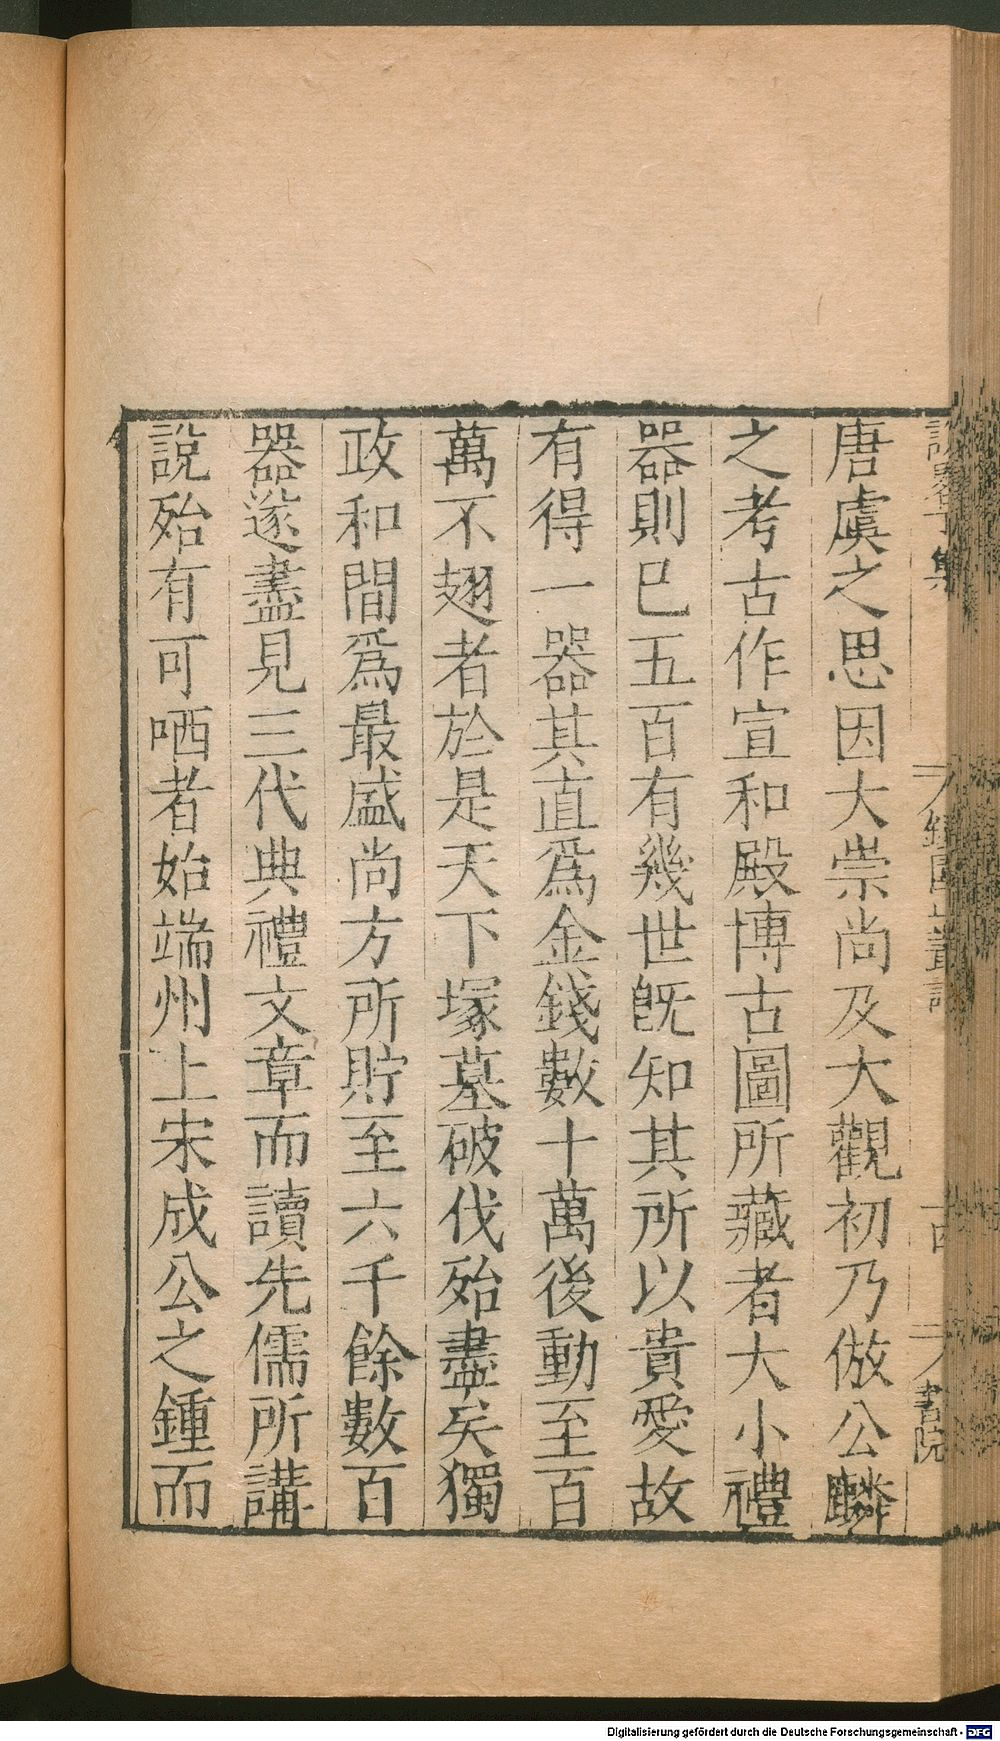 唐虞之思因大崇尚及大觀初乃倣公麟
之考古作宣和殿博古圖所藏者大小禮
器則巳五百有幾世旣知其所以貴愛故
有得一器其直爲金錢數十萬後動至百
萬不翅者於是天下塚墓破伐殆盡矣獨
政和間爲最盛尚方所貯至六千餘數百
器遂盡見三代典禮文章而讀先儒所講
說殆有可哂者始端州上宋成公之鍾而
書院
Digitalisierung gefördert durch die Deutsche Forschungsgemeinschaft - DFG